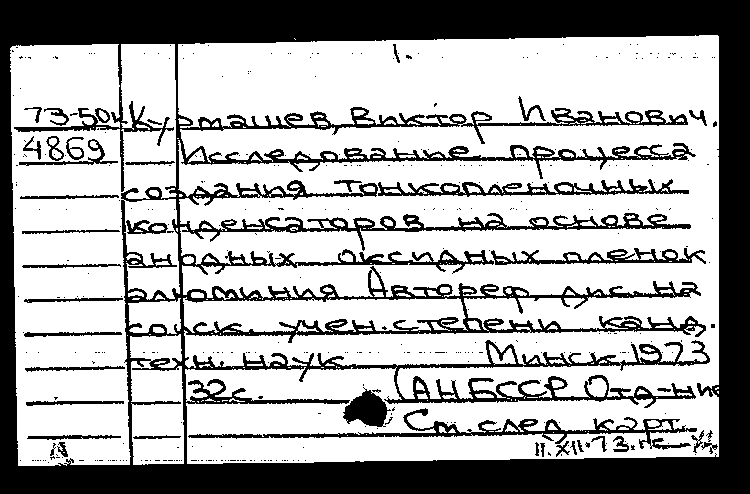 1.
73-50к Курмашев, Виктор Иванович.
4869 Исследование процесса
создания тонкопленочных
конденсаторов на основе
анодных оксидных пленок
алюминия. Автореф. дис. на
соиск. учен. степени канд.
техн. наук Минск, 1973
32с. (АН БССР Отд-ние
См. след. карт.
11.XII.73.